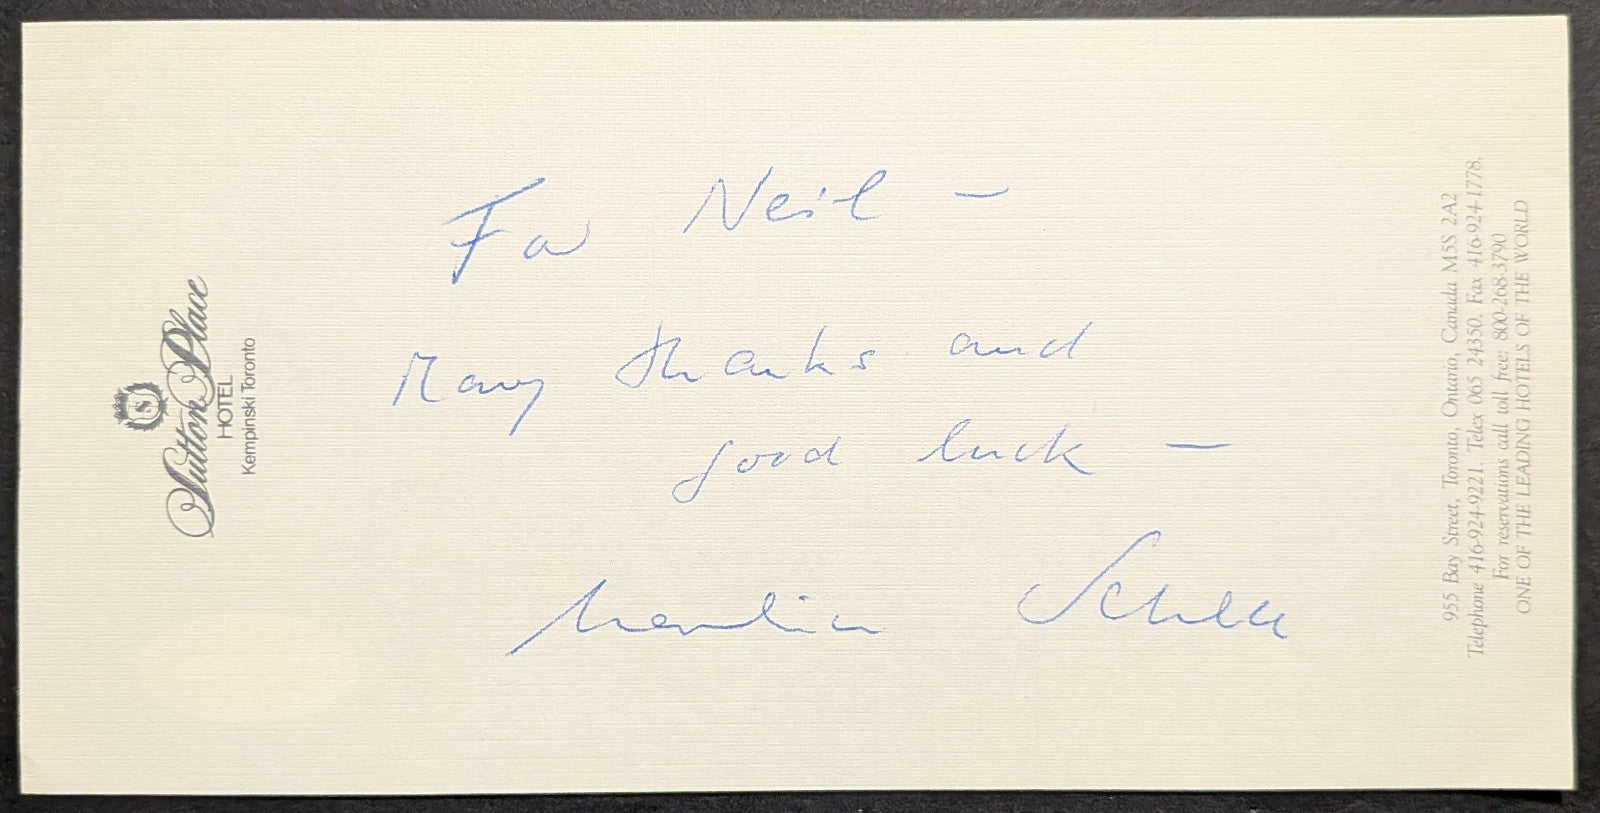 Sutton Place
HOTEL
Kempinski Toronto
For Neil –
Many thanks and
good luck –
Schell
955 Bay Street, Toronto, Ontario, Canada M5S 2A2
Telephone 416-924-9221. Telex 065 24350. Fax 416-924-1778.
For reservations call toll free: 800-268-3790
ONE OF THE LEADING HOTELS OF THE WORLD